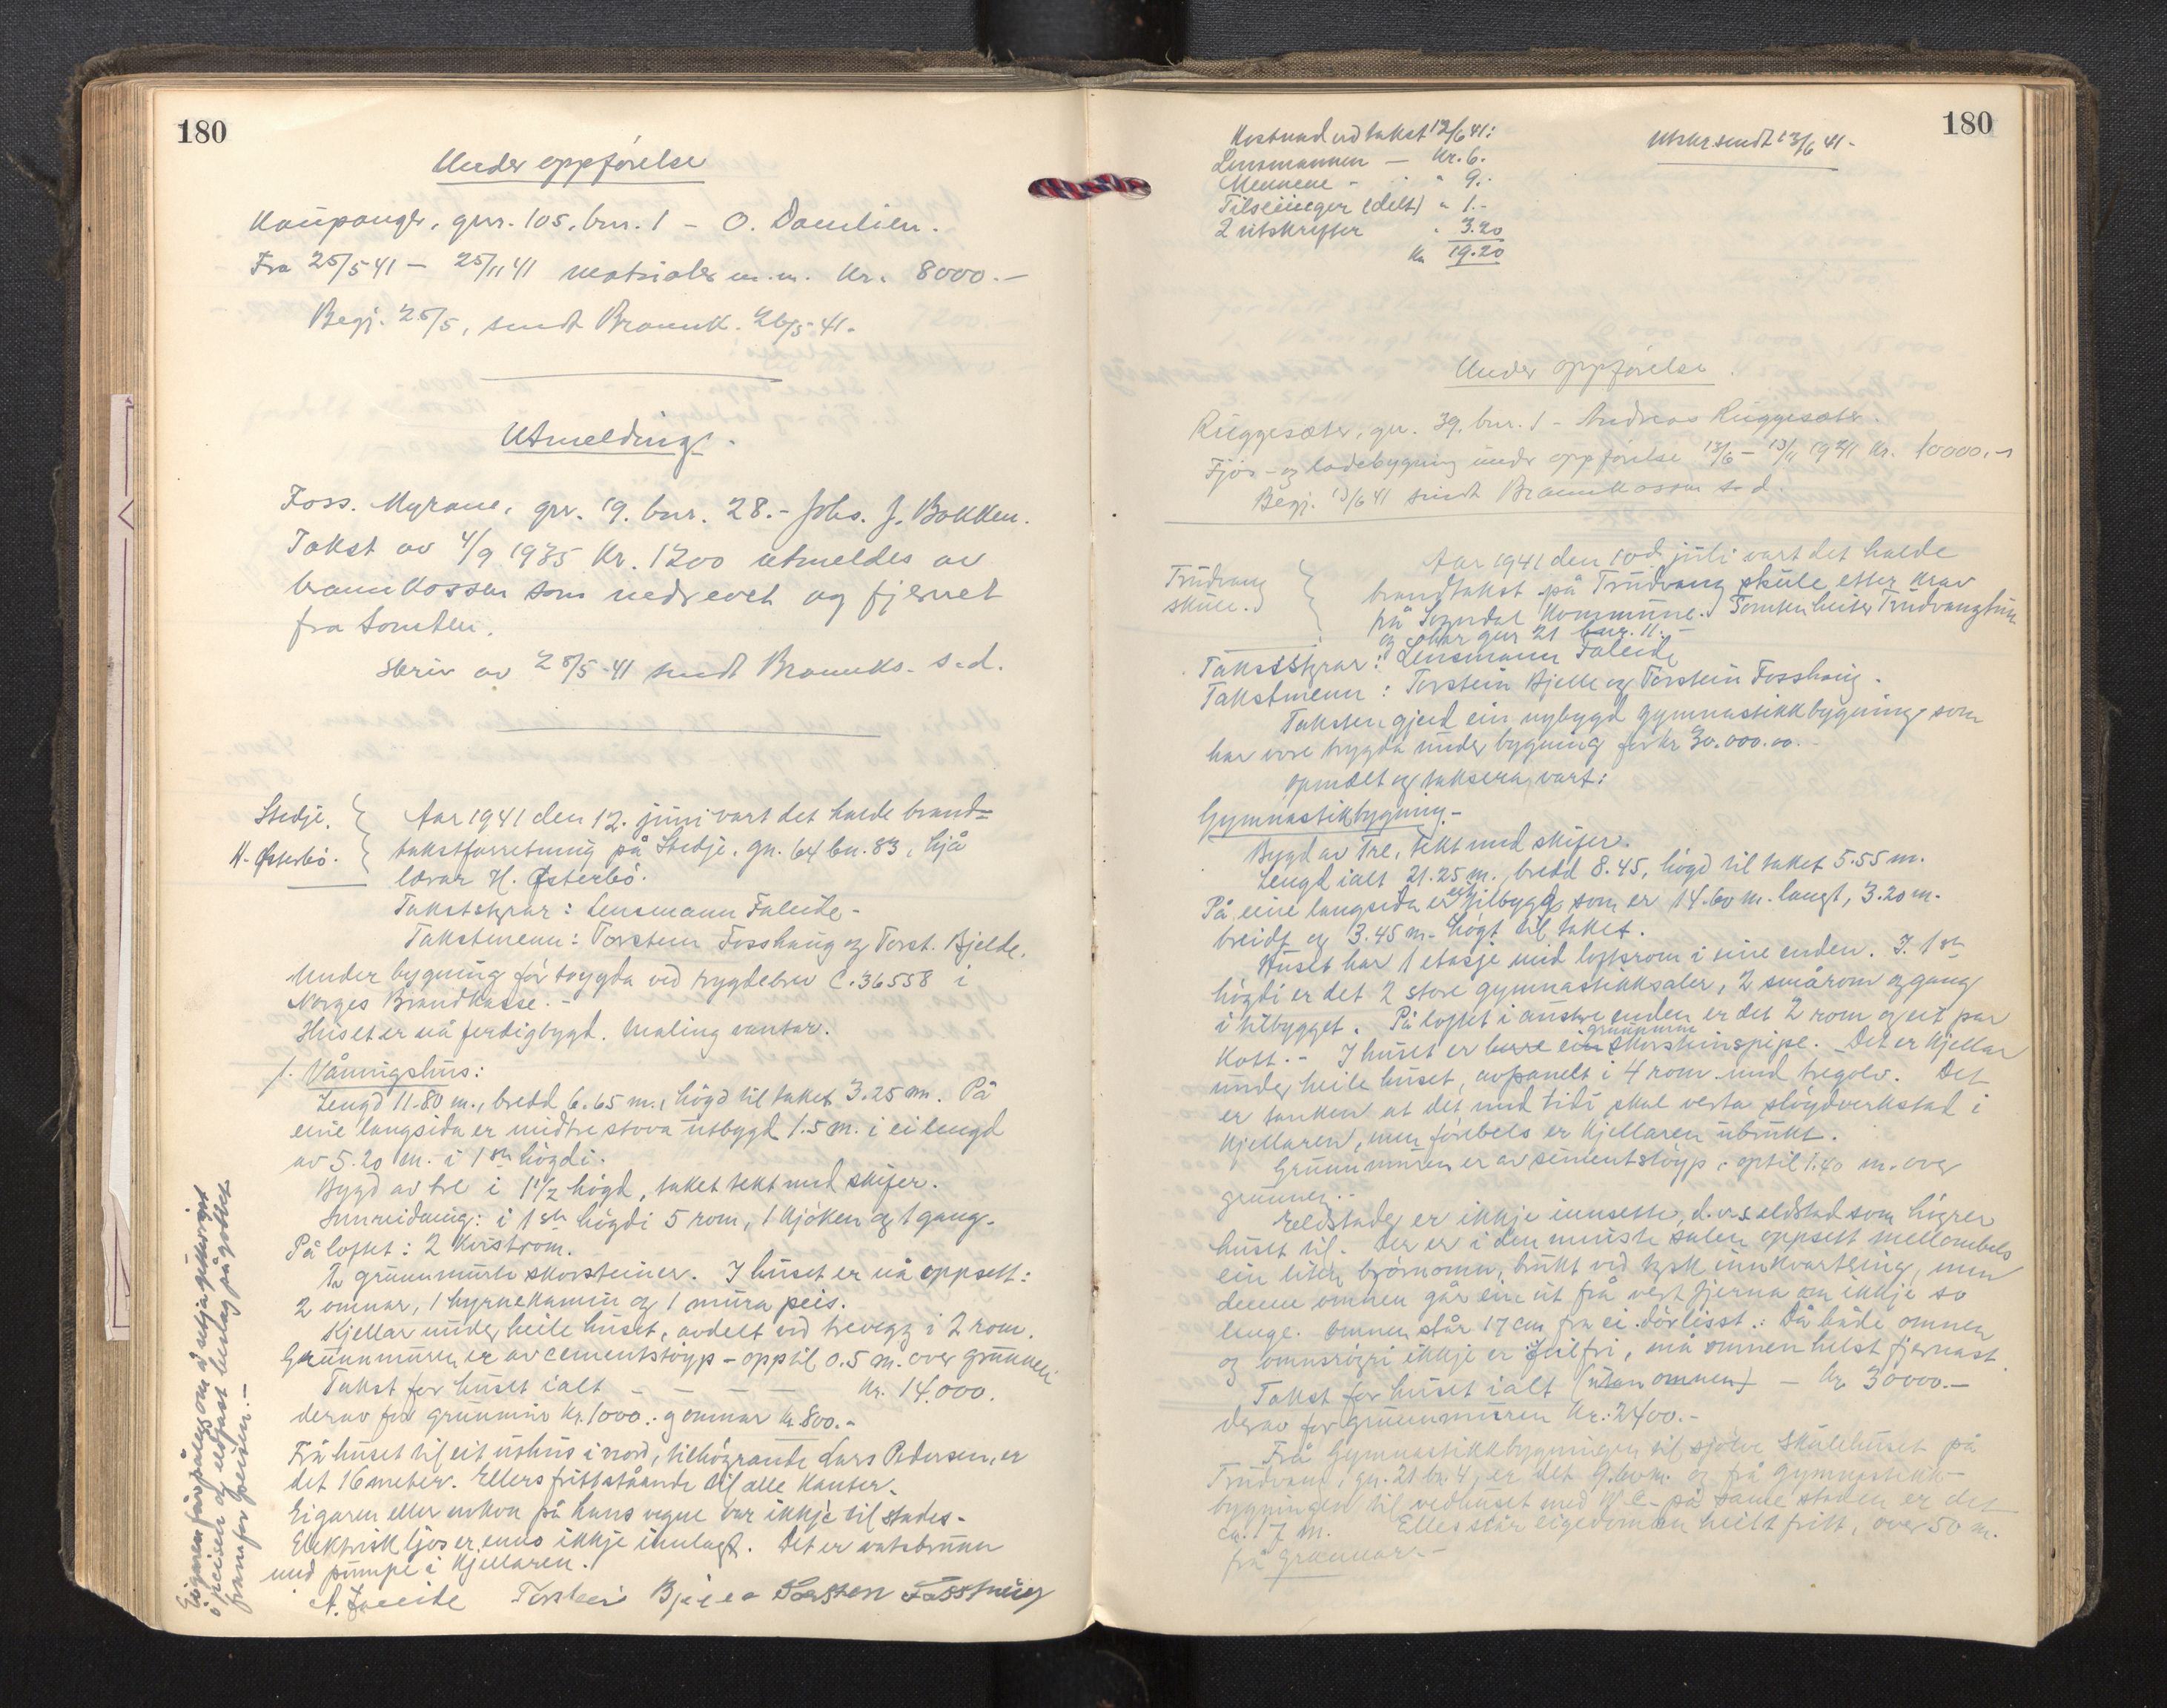 180
Under oppførelse
Kaupanger, gnr. 105, bnr. 1 - O. Damlien.
Fra 25/5 41 - 25/11 41 materialer m.m. Kr. 8000.-
Begj. 25/5, sendt Brannk. 26/5-41.
Utmelding.
Foss. Myrane, gnr. 19. bnr. 28.- Johs. J. Bakken.
Takst av 4/9 1935 Kr. 1200 utmeldes av
brannkassen som nedrevet og fjernet
fra tomten.
Skriv av 28/5-41 sendt Brannks. s.d.
Stedje.
H. Østerbö.
Aar 1941 den 12. juni vart det halde brand-
takstforretning på Stedje, gn. 64 bn. 83, hjå
lærar H. Østerbö.
Takstskyrar: Lensmann Faleide-
Takstmenn: Torstein Fosshaug og Torst. Bjelde.
Under bygning før trygda ved trygdebrev C.36558 i
Norges Brandkasse.-
Huset er nå ferdigbygd. Maling vantar.
1. Våningshus:
Lengd 11.80 m., bredd 6.65 m., högd til taket 3.25 m. På
eine langsida er midtre stova utbygd 1.5 m. i ei lengd
av 5.20 m. i 1ste högdi.
Bygd av tre i 1 1/2 högd, taket tekt med skifer.
Innreidning: i 1ste högdi 5 rom, 1 kjöken og 1 gang.
På loftet: 2 kvistrom.
To grunnmurte skorsteiner. I huset er nå oppsett:
2 omnar, 1 hyrnekamin og 1 mura peis.
Kjellar under heile huset, avdelt ved trevegg i 2 rom.
Grunnmuren er av cementstöyp - opptil 0.5 m. over grunnen
Takst for huset ialt - - - - Kr. 14.000.
derav for grunnmur Kr. 1000.- og omnar Kr. 800.-
Frå huset til eit uthus i nord, tilhöyrande Lars Pedersen, er
det 16 meter. Ellers frittståande til alle kanter.
Eigaren eller nokon på hans vegne var ikkje til stades.
Elektrisk ljos er enno ikkje innlagt. Det er vatsbrunn
med pumpe i kjellaren.
A. Faleide Torstein Bjelde Torstein Fosshaug
Eigaren får pålegg om å setja gitter
i peisen og eldfast beslag på golvet
framfor peisen.-
180
Kostnad ved takst 12/6 41:
Lensmannen - Kr. 6.-
Mennene - - " 9.-
Tilseiinger (delt) " 1.-
2 utskrifter " 3.20
Kr. 19.20
Utskr. sendt 13/6 41.-
Under oppførelse.
Ruggesæter, gnr. 39, bnr. 1 - Andreas Ruggesæter.
Fjøs- og ladebygning under oppførelse 13/6 - 13/11 1941 Kr. 10000.-
Begj. 13/6 41 sendt Brannkassen s.d.
Trudvang
skule.
Aar 1941 den 10d juli vart det halde
brandtakst på Trudvang skule etter krav
frå Sogndal kommune. Tomten heiter Trudvangtun
og har gnr 21 bnr. 11.-
Takststyrar: Lensmann Faleide
Takstmenn: Torstein Bjelde og Torstein Fosshaug.
Taksten gjeld ein nybygd gymnastikkbygning som
har vore trygda under bygning for kr 30.000.00.-
Opmælt og taksera vart:
Gymnastikbygning.-
Bygd av Tre, tekt med skifer.
Lengd ialt 21.25 m., bredd 8.45, högd til taket 5.55 m.
På eine langsida er eit tilbygg som er 14.60 m. langt, 3.20 m.
breidt og 3.45 m. högt til taket.
Huset har 1 etasje med loftsrom i eine enden. I 1ste
högdi er det 2 store gymnastikksaler, 2 smårom og gang
i tilbygget. På loftet i austre enden er det 2 rom og eit par
kott.- I huset er berre ein grunnmura skorsteinspipe. Det er kjellar
under heile huset, avpanelt i 4 rom med tregolv. Det
er tanken at det med tidi skal verta slöydverkstad i
kjellaren, men förebels er kjellaren ubrukt.
Grunnmuren er av sementstöyp, optil 1.40 m. over
grunnen.-
Eldstader er ikkje innsette, d.v.s eldstad som höyrer
huset til. Der er i den minste salen oppsett mellombels
ein liten björnomn, brukt ved tysk innkvartering, men
denne omnen går ein ut frå vert fjerna om ikkje so
lenge. Omnen står 17 cm frå ei dörlisst. Då både omnen
og omnsröyri ikkje er feilfri, må omnen helst fjernast.
Takst for huset ialt (utan omnen) - kr 30000.-
derav for grunnmuren Kr. 2400.-
Frå Gymnastikkbygningen til sjølve skulehuset på
Trudvang, gn. 21 bn. 4, er det 9. m. og frå gymnastikk-
bygningen til vedhuset med W.C. på same staden er det
ca. 7 m. Elles står eigedomen heilt fritt, over 50 m.
frå grannar.-